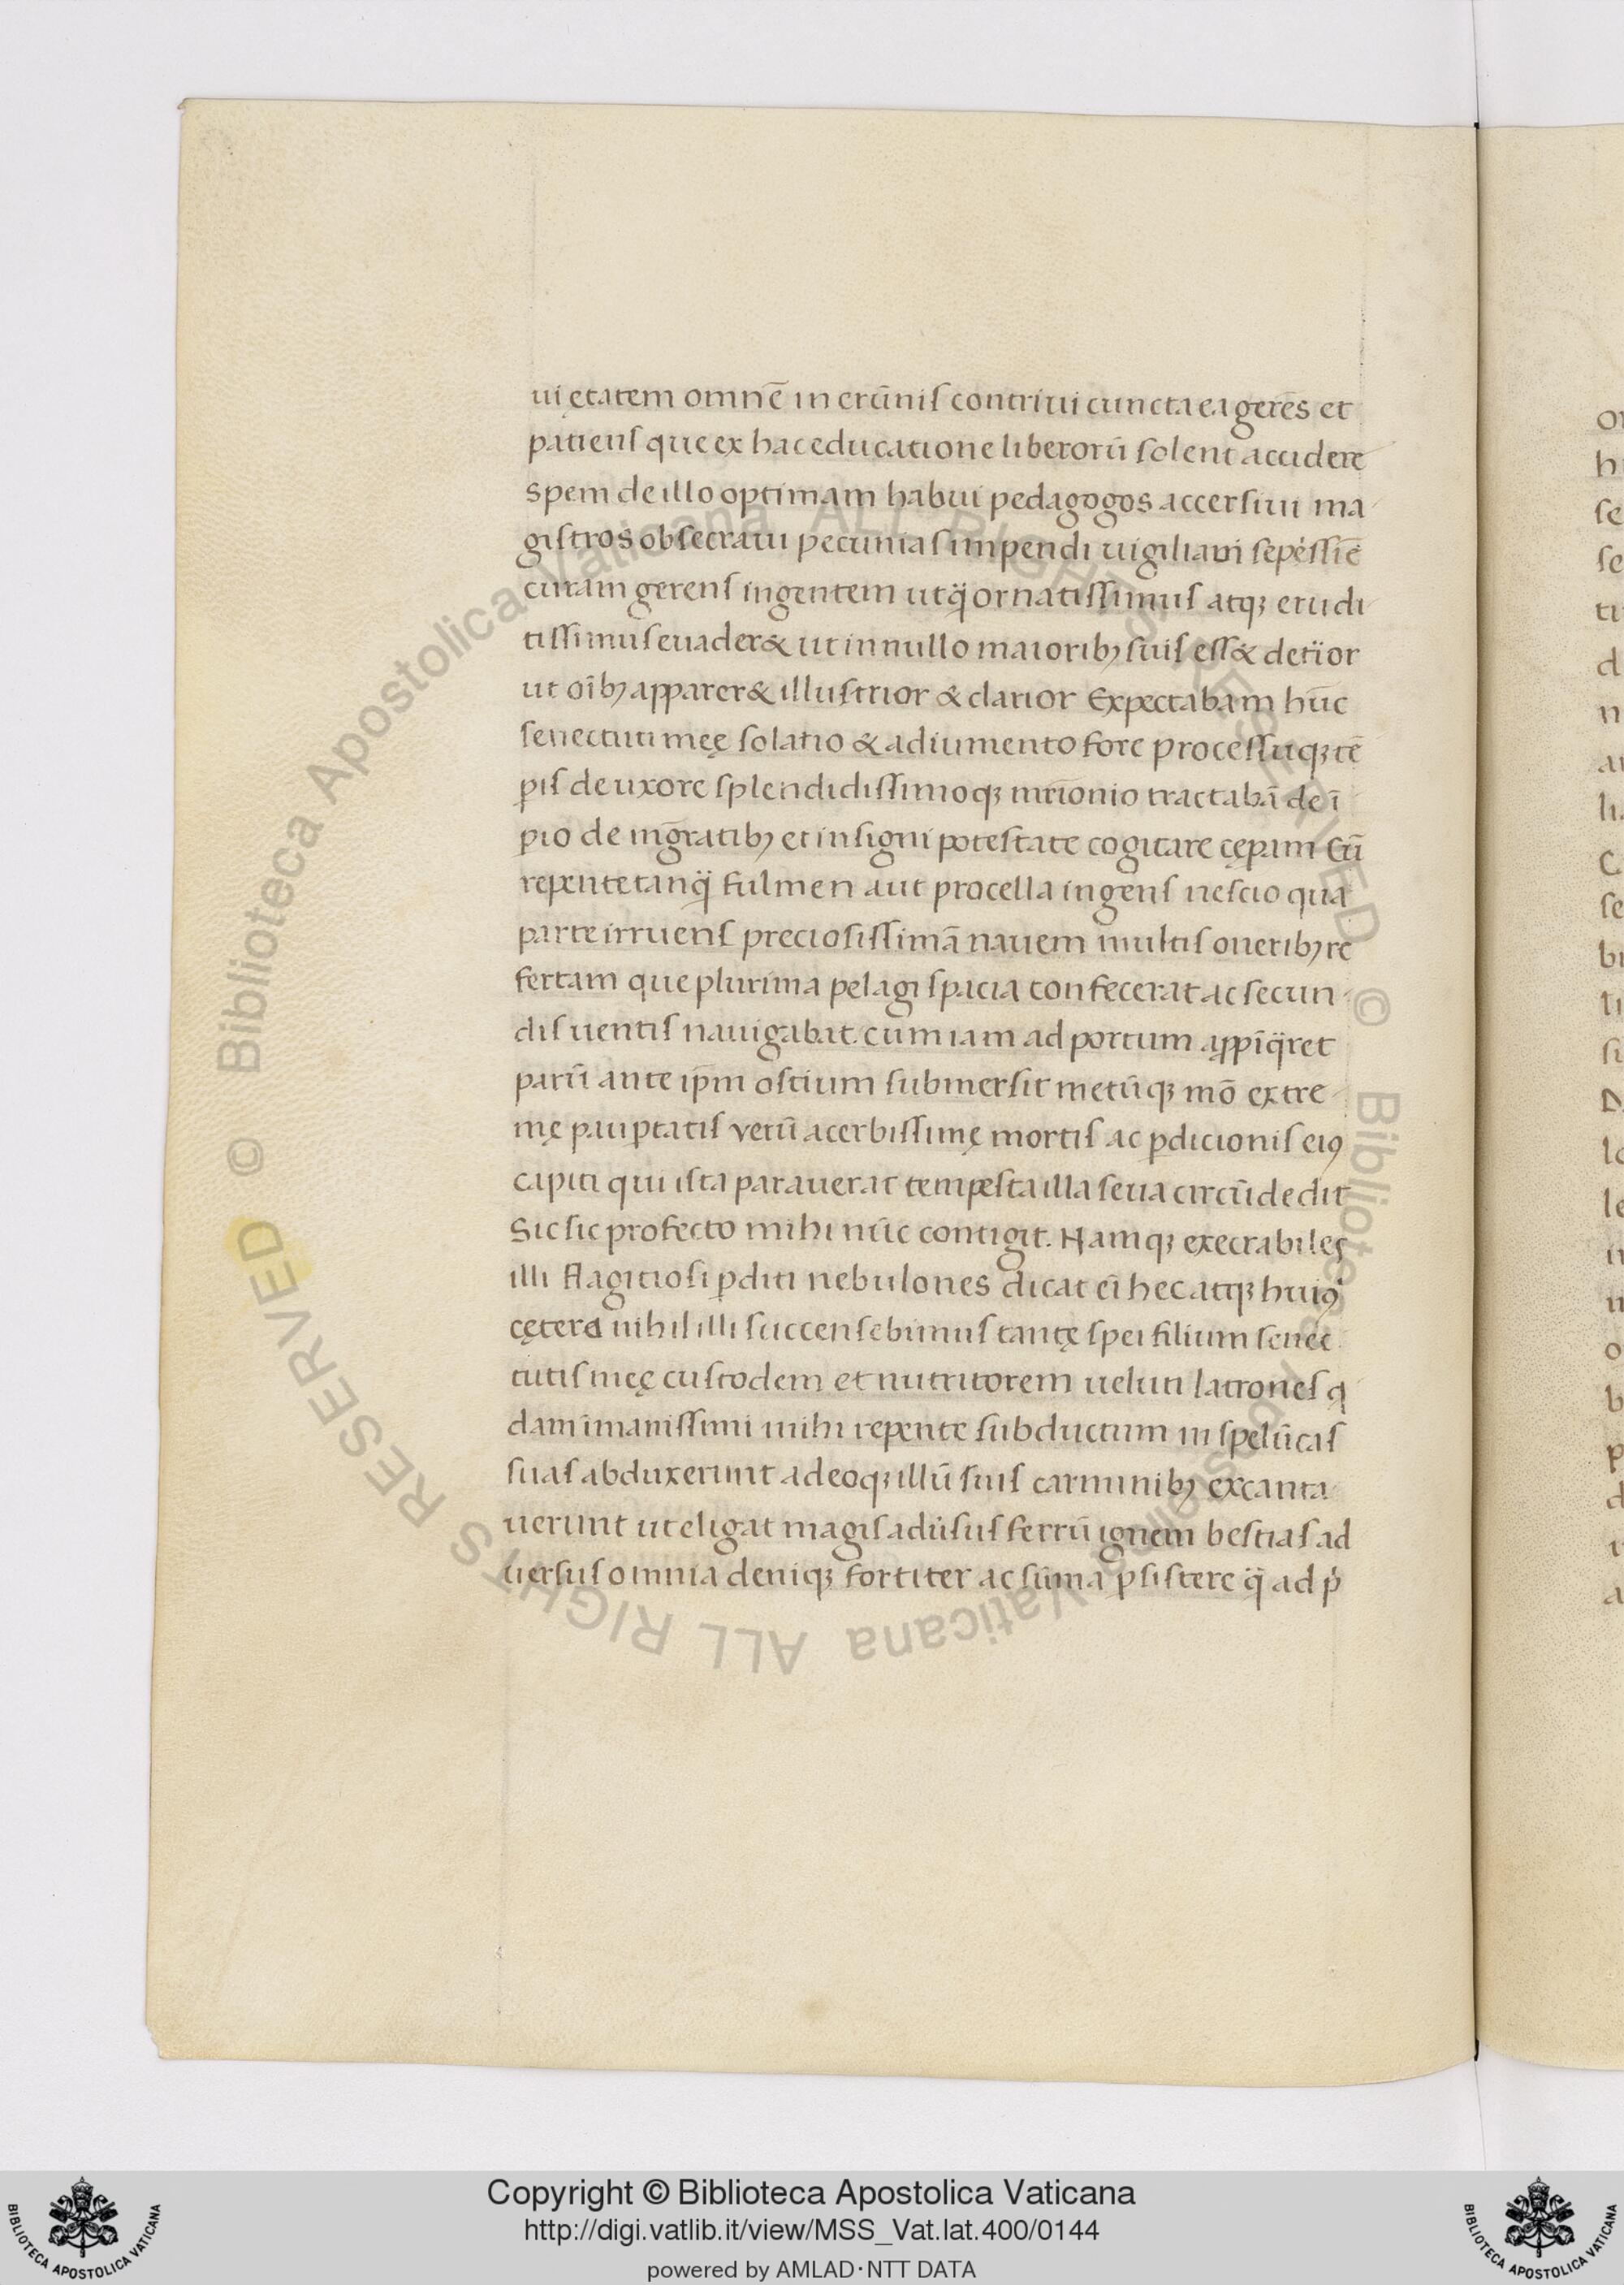 ui ętatem omnē in erūnis contriui cuncta ea gerēs et
patiens que ex hac educatione liberorū solent accidere
spem de illo optimam habui pedagogos accersiui ma
gistros obsecraui pecunias impendi uigiliaui sepissīē
curam gerens ingentem ut q̄ ornatissimus atqꝫ erudi
tissimus euader& ut in nullo maioribꝫ suis ess& deterior
ut oībꝫ apparer& illustrior & clarior Expectabam hūc
senectuti męę solatio & adiumento fore processuqꝫ tē
pis de uxore splendidissimoqꝫ mr̄ionio tractabā de ī
pio de mḡratibꝫ et insigni potestate cogitare cępam Cū
repente tanq̄ fulmen aut procella ingens nescio qua
parte irruens preciosissimā nauem multis oneribꝫ re
fertam que plurima pelagi spacia confecerat ac secun
dis uentis nauigabat. cum iam ad portum appīq̄ret
parū ante ip̄m ostium submersit metūqꝫ mō extre
mę paup̱tatis verū acerbissimę mortis ac p̱dicionis eiꝰ
capiti qui ista parauerat tempesta illa seua circūdedit
Sic sic profecto mihi nūc contigit. Namqꝫ execrabiles
illi flagitiosi p̱diti nebulones dicat eī hec atqꝫ huiꝰ
cętera nihil illi succensebimus tantę spei filium senec
tutis męę custodem et nutritorem ueluti latrones q
dam īmanissimi mihi repente subductum in spelūcas
suas abduxerunt adeoqꝫ illū suis carminibꝫ excanta
uerunt ut eligat magis adusus ferrū ignem bestias ad
uersus omnia deniqꝫ fortiter ac sūma p̱sistere q̄ ad p
Copyright © Biblioteca Apostolica Vaticana
http://digi.vatlib.it/view/MSS_Vat.lat.400/0144
powered by AMLAD·NTT DATA
BIBLIOTECA APOSTOLICA VATICANA
BIBLIOTECA APOSTOLICA VATICANA
© Biblioteca Apostolica Vaticana ALL RIGHTS RESERVED © Biblioteca Apostolica Vaticana ALL RIGHTS RESERVED